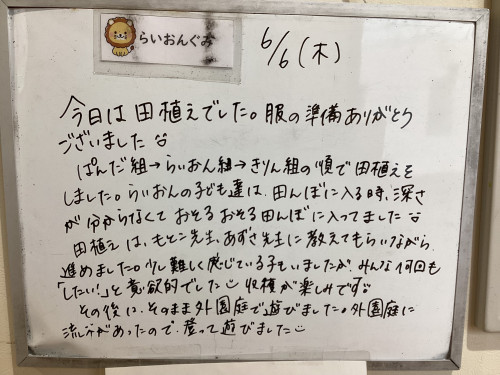 らいおんぐみ
6/6(木)
今日は田植えでした。服の準備ありがとう
ございました
ぱんだ組→らいおん組→きりん組の順で田植えを
しました。らいおんの子ども達は、田んぼに入る時、深さ
が分からなくておそるおそる田んぼに入ってました
田植えは、もとこ先生、あずさ先生に教えてもらいながら
進めました。少し難しく感じている子もいましたが、みんな何回も
「したい!」と意欲的でした 収穫が楽しみです
その後に、そのまま外園庭で遊びました。外園庭に
があったので、登って遊びました